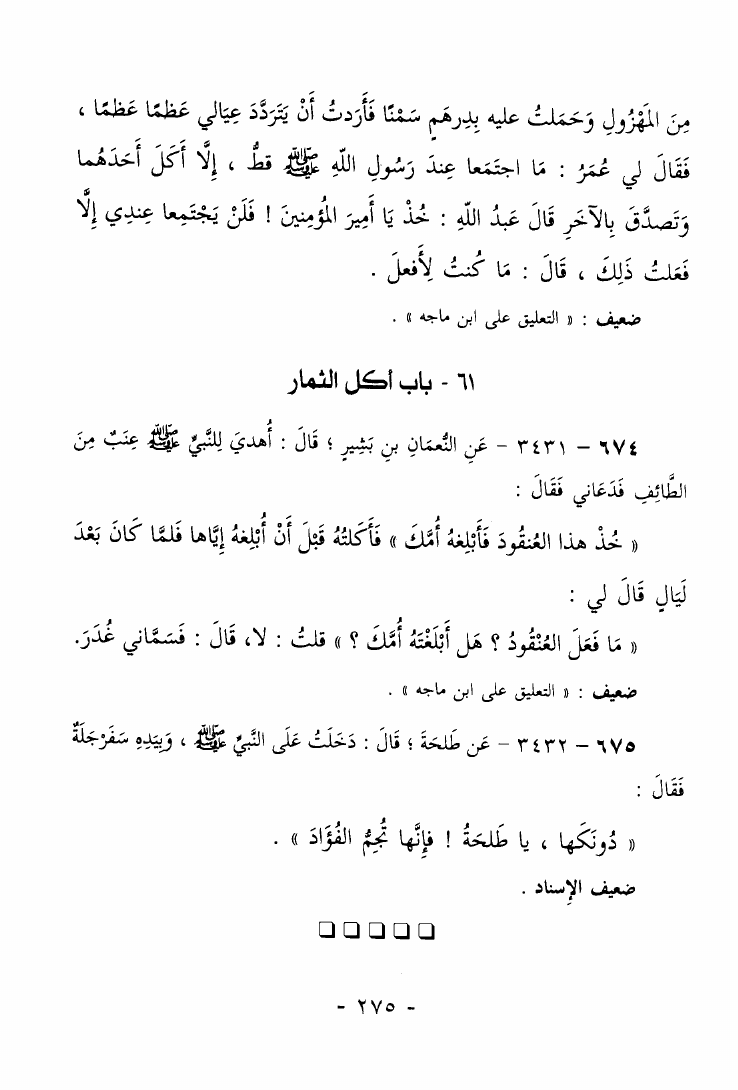 مِنَ المَهْزُولِ وَحَمَلتُ عليه بِدِرهَمٍ سَمْنًا فَأَردتُ أَنْ يَتَرَدَّدَ عِيَالي عَظمًا عَظمًا ،
فَقَالَ لي عُمَرُ : مَا اجتَمَعا عِندَ رَسُولِ اللّهِ ﷺ قطُّ ، إِلَّا أَكَلَ أَحَدَهُما
وَتَصدَّقَ بِالآخَرِ قَالَ عَبدُ اللّهِ : خُذْ يَا أَمِيرَ المُؤمِنينَ ! فَلَنْ يَجْتَمِعا عِندِي إِلَّا
فَعَلتُ ذَلِكَ ، قَالَ : مَا كُنتُ لِأَفعلَ .
ضعيف : « التعليق على ابن ماجه » .
٦١ - باب أكل الثمار
٦٧٤ – ٣٤٣١ – عَنِ النُّعمَانِ بنِ بَشِيرٍ ؛ قَالَ : أُهدِيَ لِلنَّبيِّ ﷺ عِنَبٌ مِنَ
الطَّائِفِ فَدَعَاني فَقَالَ :
« خُذْ هذا العُنقُودَ فَأَبْلِغهُ أُمَّكَ » فَأَكَلتُهُ قَبْلَ أَنْ أُبْلِغهُ إِيَّاها فَلمَّا كَانَ بَعْدَ
لَيَالٍ قَالَ لي :
« مَا فَعَلَ العُنْقُودُ ؟ هَل أَبْلَغْتَهُ أُمَّكَ ؟ » قلتُ : لا، قَالَ : فَسَمَّاني غُدَرَ.
ضعيف : « التعليق على ابن ماجه » .
٦٧٥ – ٣٤٣٢ – عَن طَلحَةَ ؛ قَالَ : دَخَلَتُ عَلَى النَّبيِّ ﷺ ، وَبِيَدِهِ سَفَرْجَلَةٌ
فَقَالَ :
« دُونَكَها ، يا طَلحَةُ ! فإِنَّها تُجِمُّ الفُؤَادَ » .
ضعيف الإسناد .
❏ ❏ ❏ ❏ ❏
- ٢٧٥ -